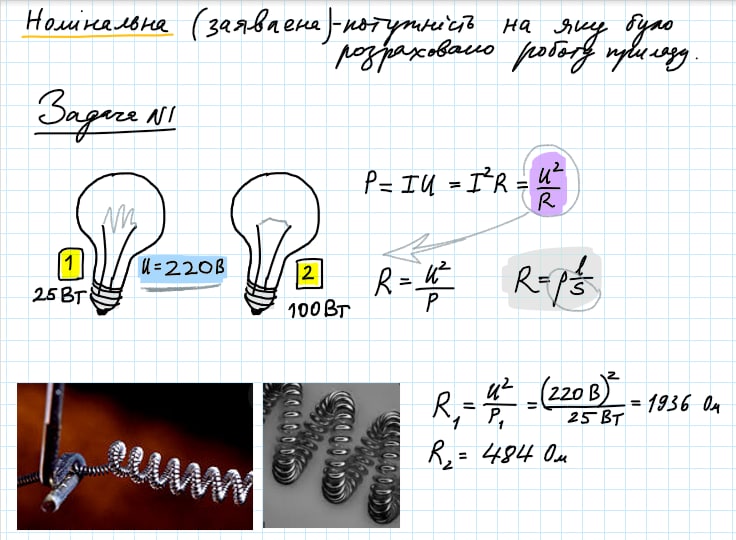 Номінальна (заявлена)-потужність на яку було
розраховано роботу приладу.
Задача №1
P = IU = I²R = U²/R
1
25 Вт
U = 220 В
2
100 Вт
R = U²/P
R = ρ l/S
R₁ = U²/P₁ = (220 В)²/25 Вт = 1936 Ом
R₂ = 484 Ом